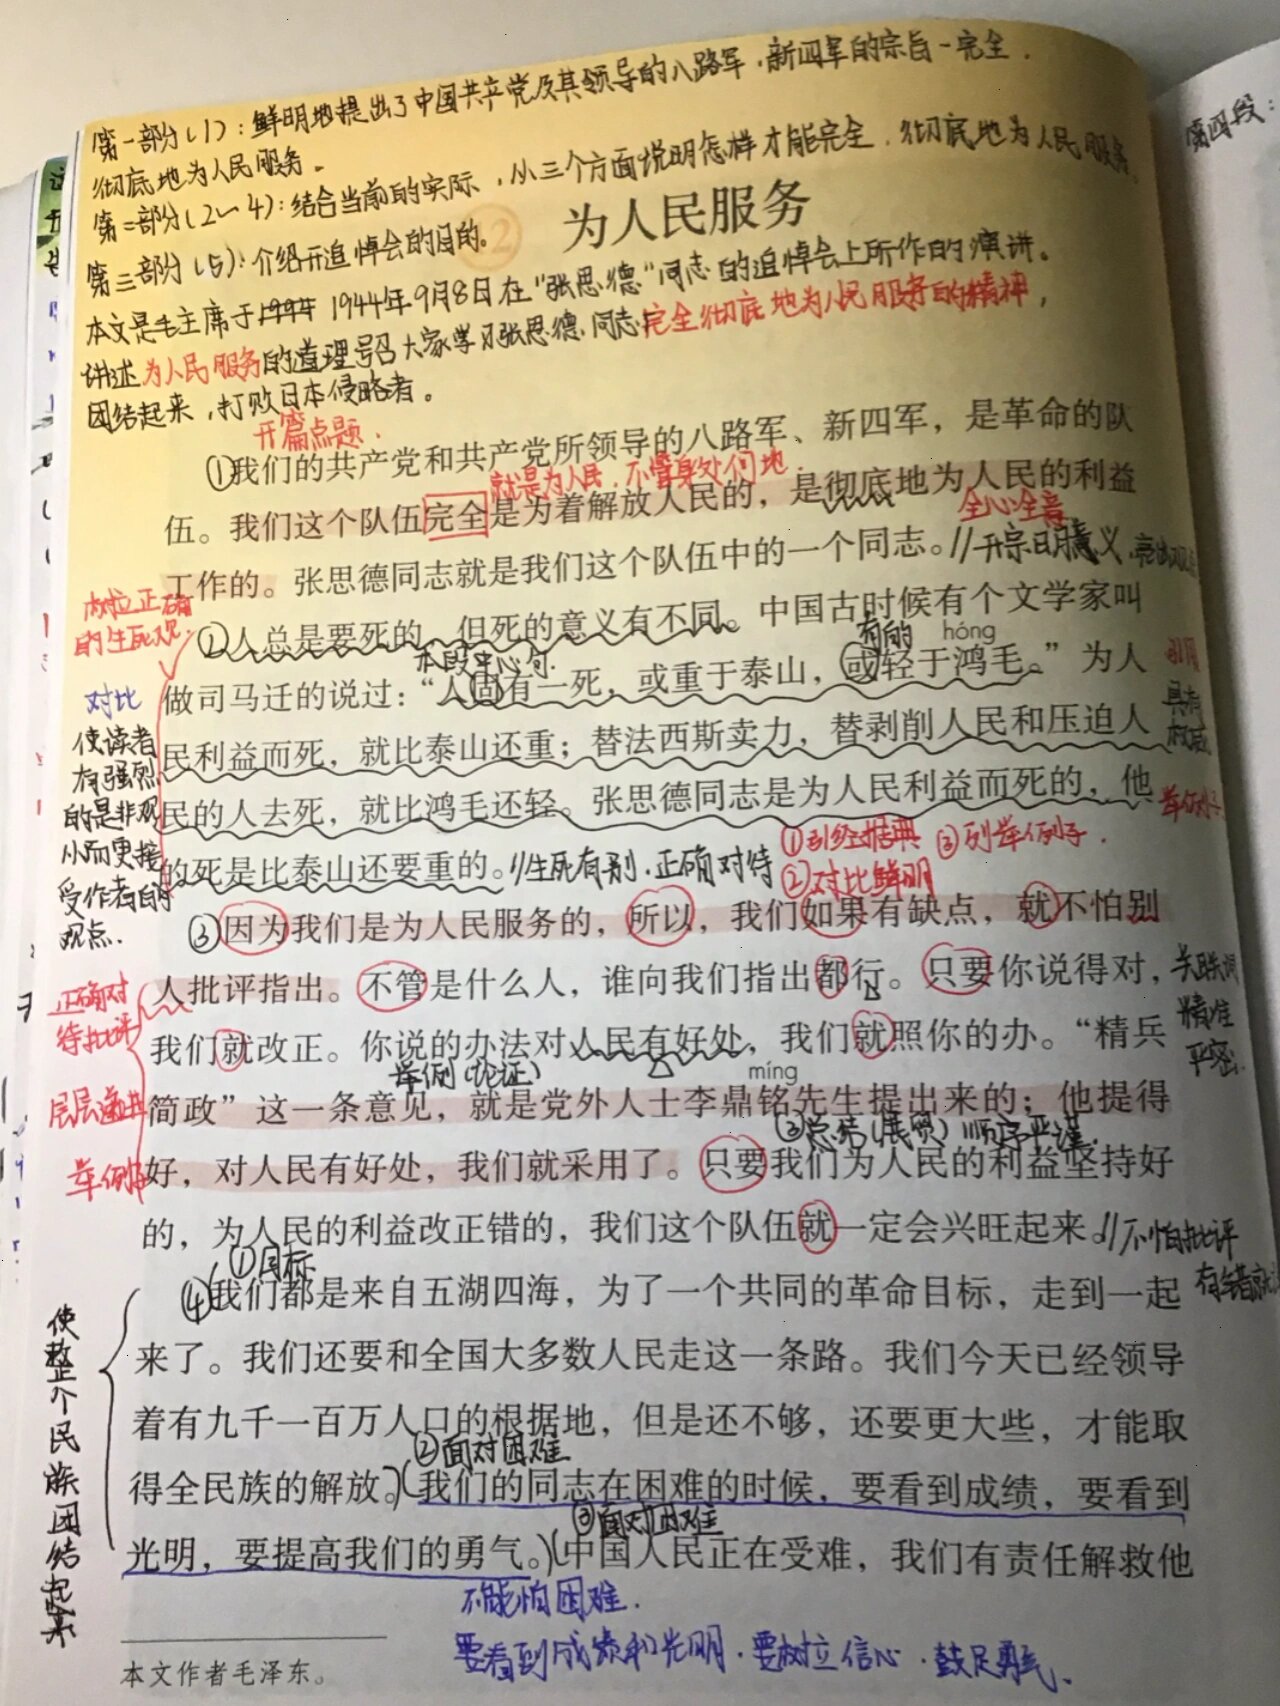 第一部分(1)：鲜明地提出了中国共产党及其领导的八路军，新四军的宗旨-完全．
彻底地为人民服务。
第二部分(2～4)：结合当前的实际，从三个方面说明怎样才能完全．彻底地为人民服务。
12 为人民服务
第三部分(5)：介绍开追悼会的目的。
本文是毛主席于 1944年9月8日在"张思德"同志的追悼会上所作的演讲。
讲述为人民服务的道理号召大家学习张思德同志完全彻底地为人民服务的精神，
团结起来，打败日本侵略者。
第四段：
开篇点题．
①我们的共产党和共产党所领导的八路军、新四军，是革命的队
就是为人民．不管身处何地．
伍。我们这个队伍完全是为着解放人民的，是彻底地为人民的利益
全心全意
工作的。张思德同志就是我们这个队伍中的一个同志。//开宗明义，亮出观点
树立正确
的生死观
②人总是要死的，但死的意义有不同。中国古时候有个文学家叫
本段中心句．
有的 hóng
做司马迁的说过：“人固有一死，或重于泰山，或轻于鸿毛。”为人
引用
具有
权威
对比
使读者
有强烈
的是非观
从而更接
受作者的
观点．
民利益而死，就比泰山还重；替法西斯卖力，替剥削人民和压迫人
民的人去死，就比鸿毛还轻。张思德同志是为人民利益而死的，他
举例子
的死是比泰山还要重的。//生死有别．正确对待
①引经据典 ③列举例子．
②对比鲜明
③因为我们是为人民服务的，所以，我们如果有缺点，就不怕别
人批评指出。不管是什么人，谁向我们指出都行。只要你说得对，
正确对
待批评
关联词
精准
严密．
我们就改正。你说的办法对人民有好处，我们就照你的办。“精兵
举例(论证)
míng
层层递进
简政”这一条意见，就是党外人士李鼎铭先生提出来的；他提得
③总结(展望) 顺序严谨．
举例子
好，对人民有好处，我们就采用了。只要我们为人民的利益坚持好
的，为人民的利益改正错的，我们这个队伍就一定会兴旺起来。//不怕批评
有错就
①目标
④我们都是来自五湖四海，为了一个共同的革命目标，走到一起
来了。我们还要和全国大多数人民走这一条路。我们今天已经领导
着有九千一百万人口的根据地，但是还不够，还要更大些，才能取
②面对困难
得全民族的解放。)(我们的同志在困难的时候，要看到成绩，要看到
③面对困难
光明，要提高我们的勇气。)(中国人民正在受难，我们有责任解救他
使整个民族团结起来
不能怕困难．
要看到成绩和光明．要树立信心．鼓足勇气．
本文作者毛泽东。